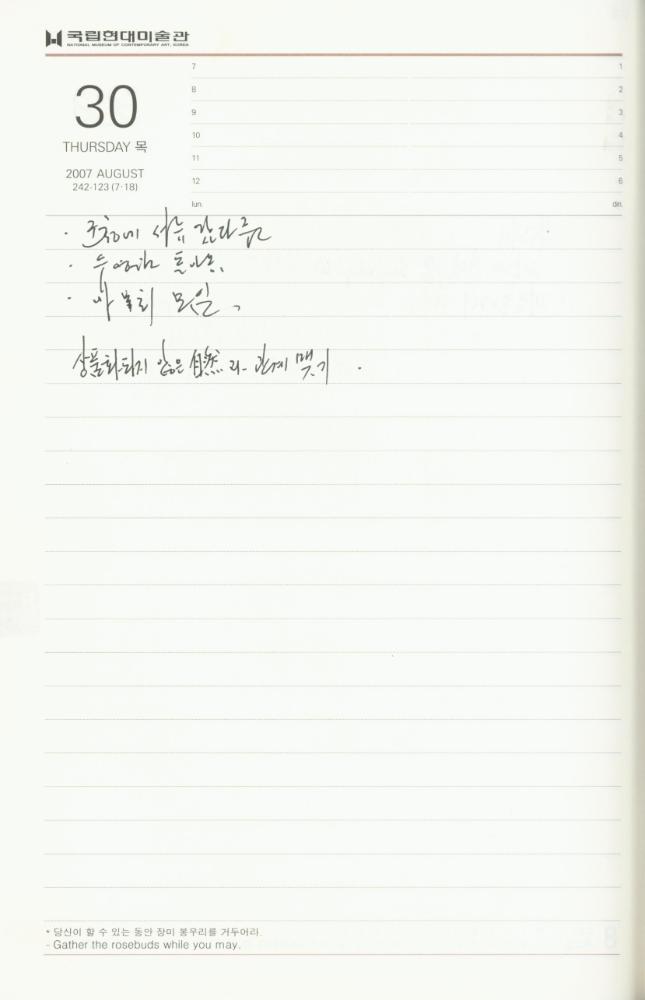 국립현대미술관
NATIONAL MUSEUM OF CONTEMPORARY ART, KOREA
30
THURSDAY 목
2007 AUGUST
242-123 (7·18)
7 1
8 2
9 3
10 4
11 5
12 6
lun. din.
· 서류 갖다줌
·
· 모임.
상품화되지 않은 自然과 관계 맺기.
* 당신이 할 수 있는 동안 장미 봉우리를 거두어라.
- Gather the rosebuds while you may.